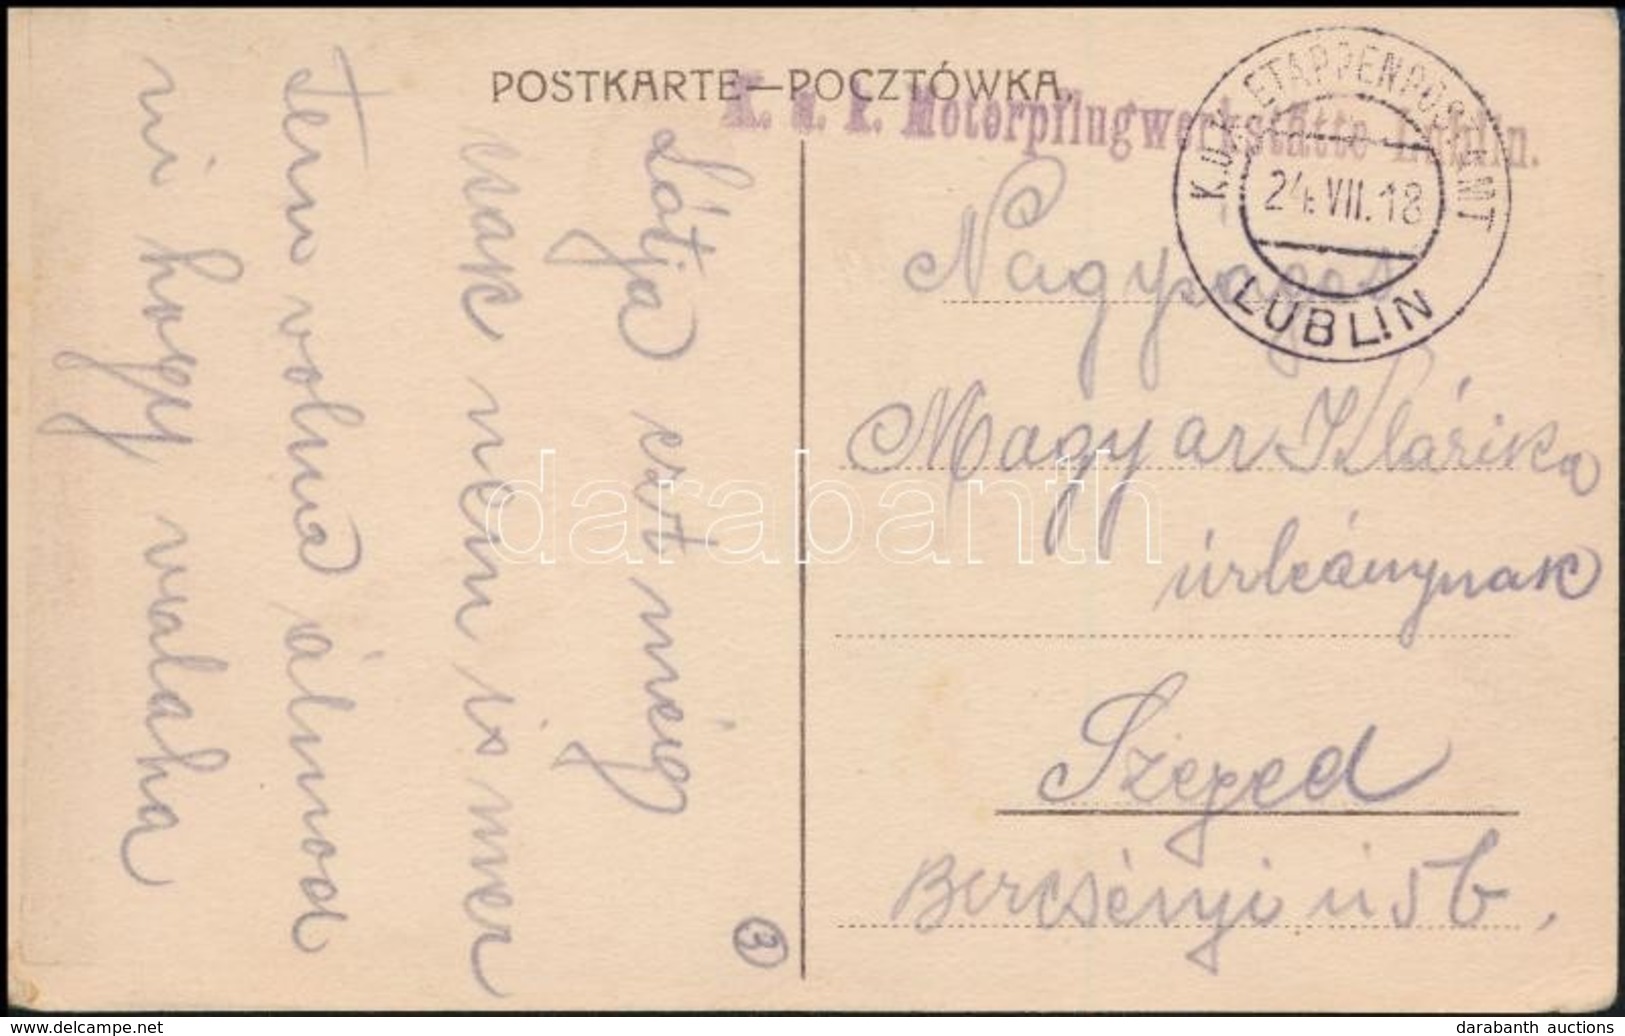 POSTKARTE—POCZTÓWKA
K. u. k. Motorpflugwerkstätte Lublin.
K.U.K. ETAPPENPOSTAMT
24.VII.18
LUBLIN
Nagyságos
Magyar Klárika
úrleánynak
Szeged
Bercsényi u 5b,
Látja ezt még
csak nem ismer
tem volna álmod
ni hogy valaha
3
darabanth
delcampe.net
darabanth auctions